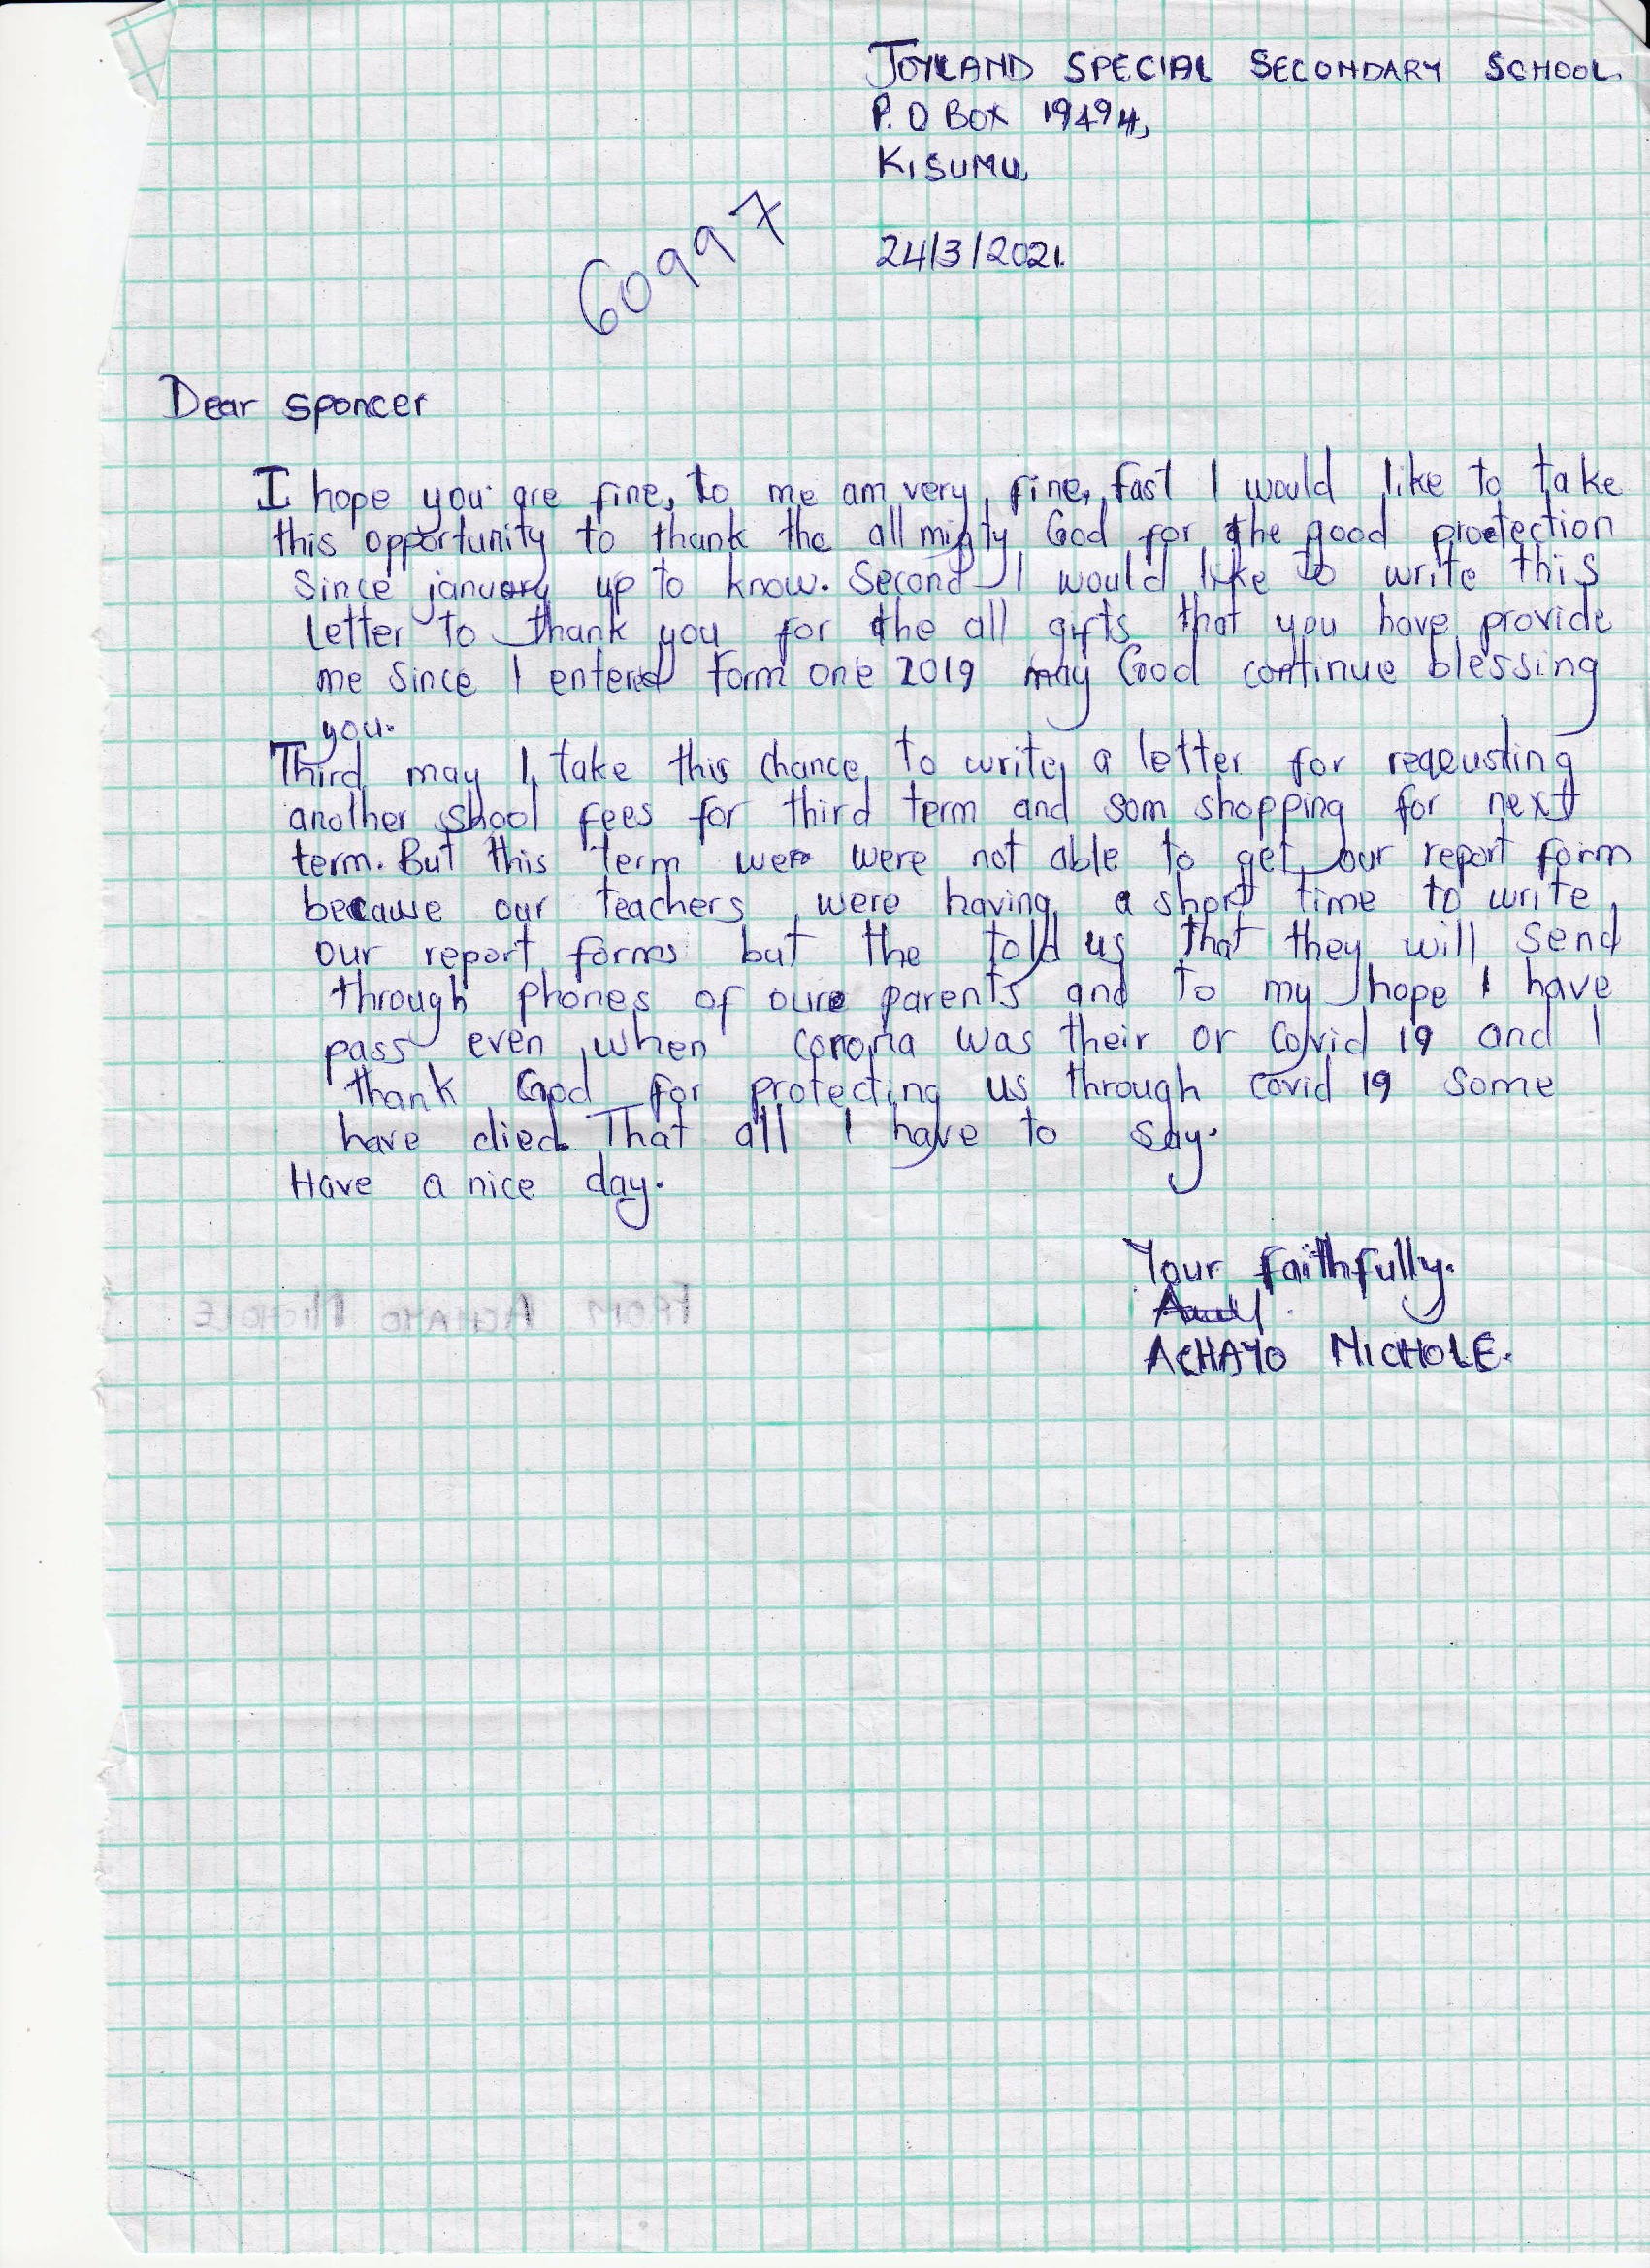 JOYLAND SPECIAL SECONDARY SCHOOL.
P.O BOX 19494,
KISUMU,
60997
24/3/2021.
Dear sponcer
I hope you are fine, to me am very, fine, fast I would like to take
this opportunity to thank the all mighty God for the good proetection
since january up to know. Second I would like to write this
letter to thank you for the all gifts that you have provide
me since I entered form one 2019 may God continue blessing
you.
Third may I take this chance to write a letter for reqeusting
another shool fees for third term and som shopping for next
term. But this term wer were not able to get our report form
because our teachers were having a short time to write
our report forms but the told us that they will send
through phones of oure parents and to my hope I have
pass even when corona was their or Covid 19 and I
thank God for protecting us through covid 19 some
have died. That all I have to say.
Have a nice day.
Your faithfully.
ACHAYO NICHOLE.
FROM ACHAYO NICHOLE